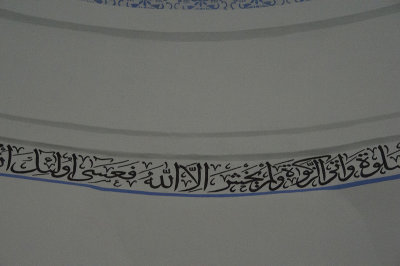 لوة وآتى الزكوة ولم يخش الا الله فعسى اولئك ا